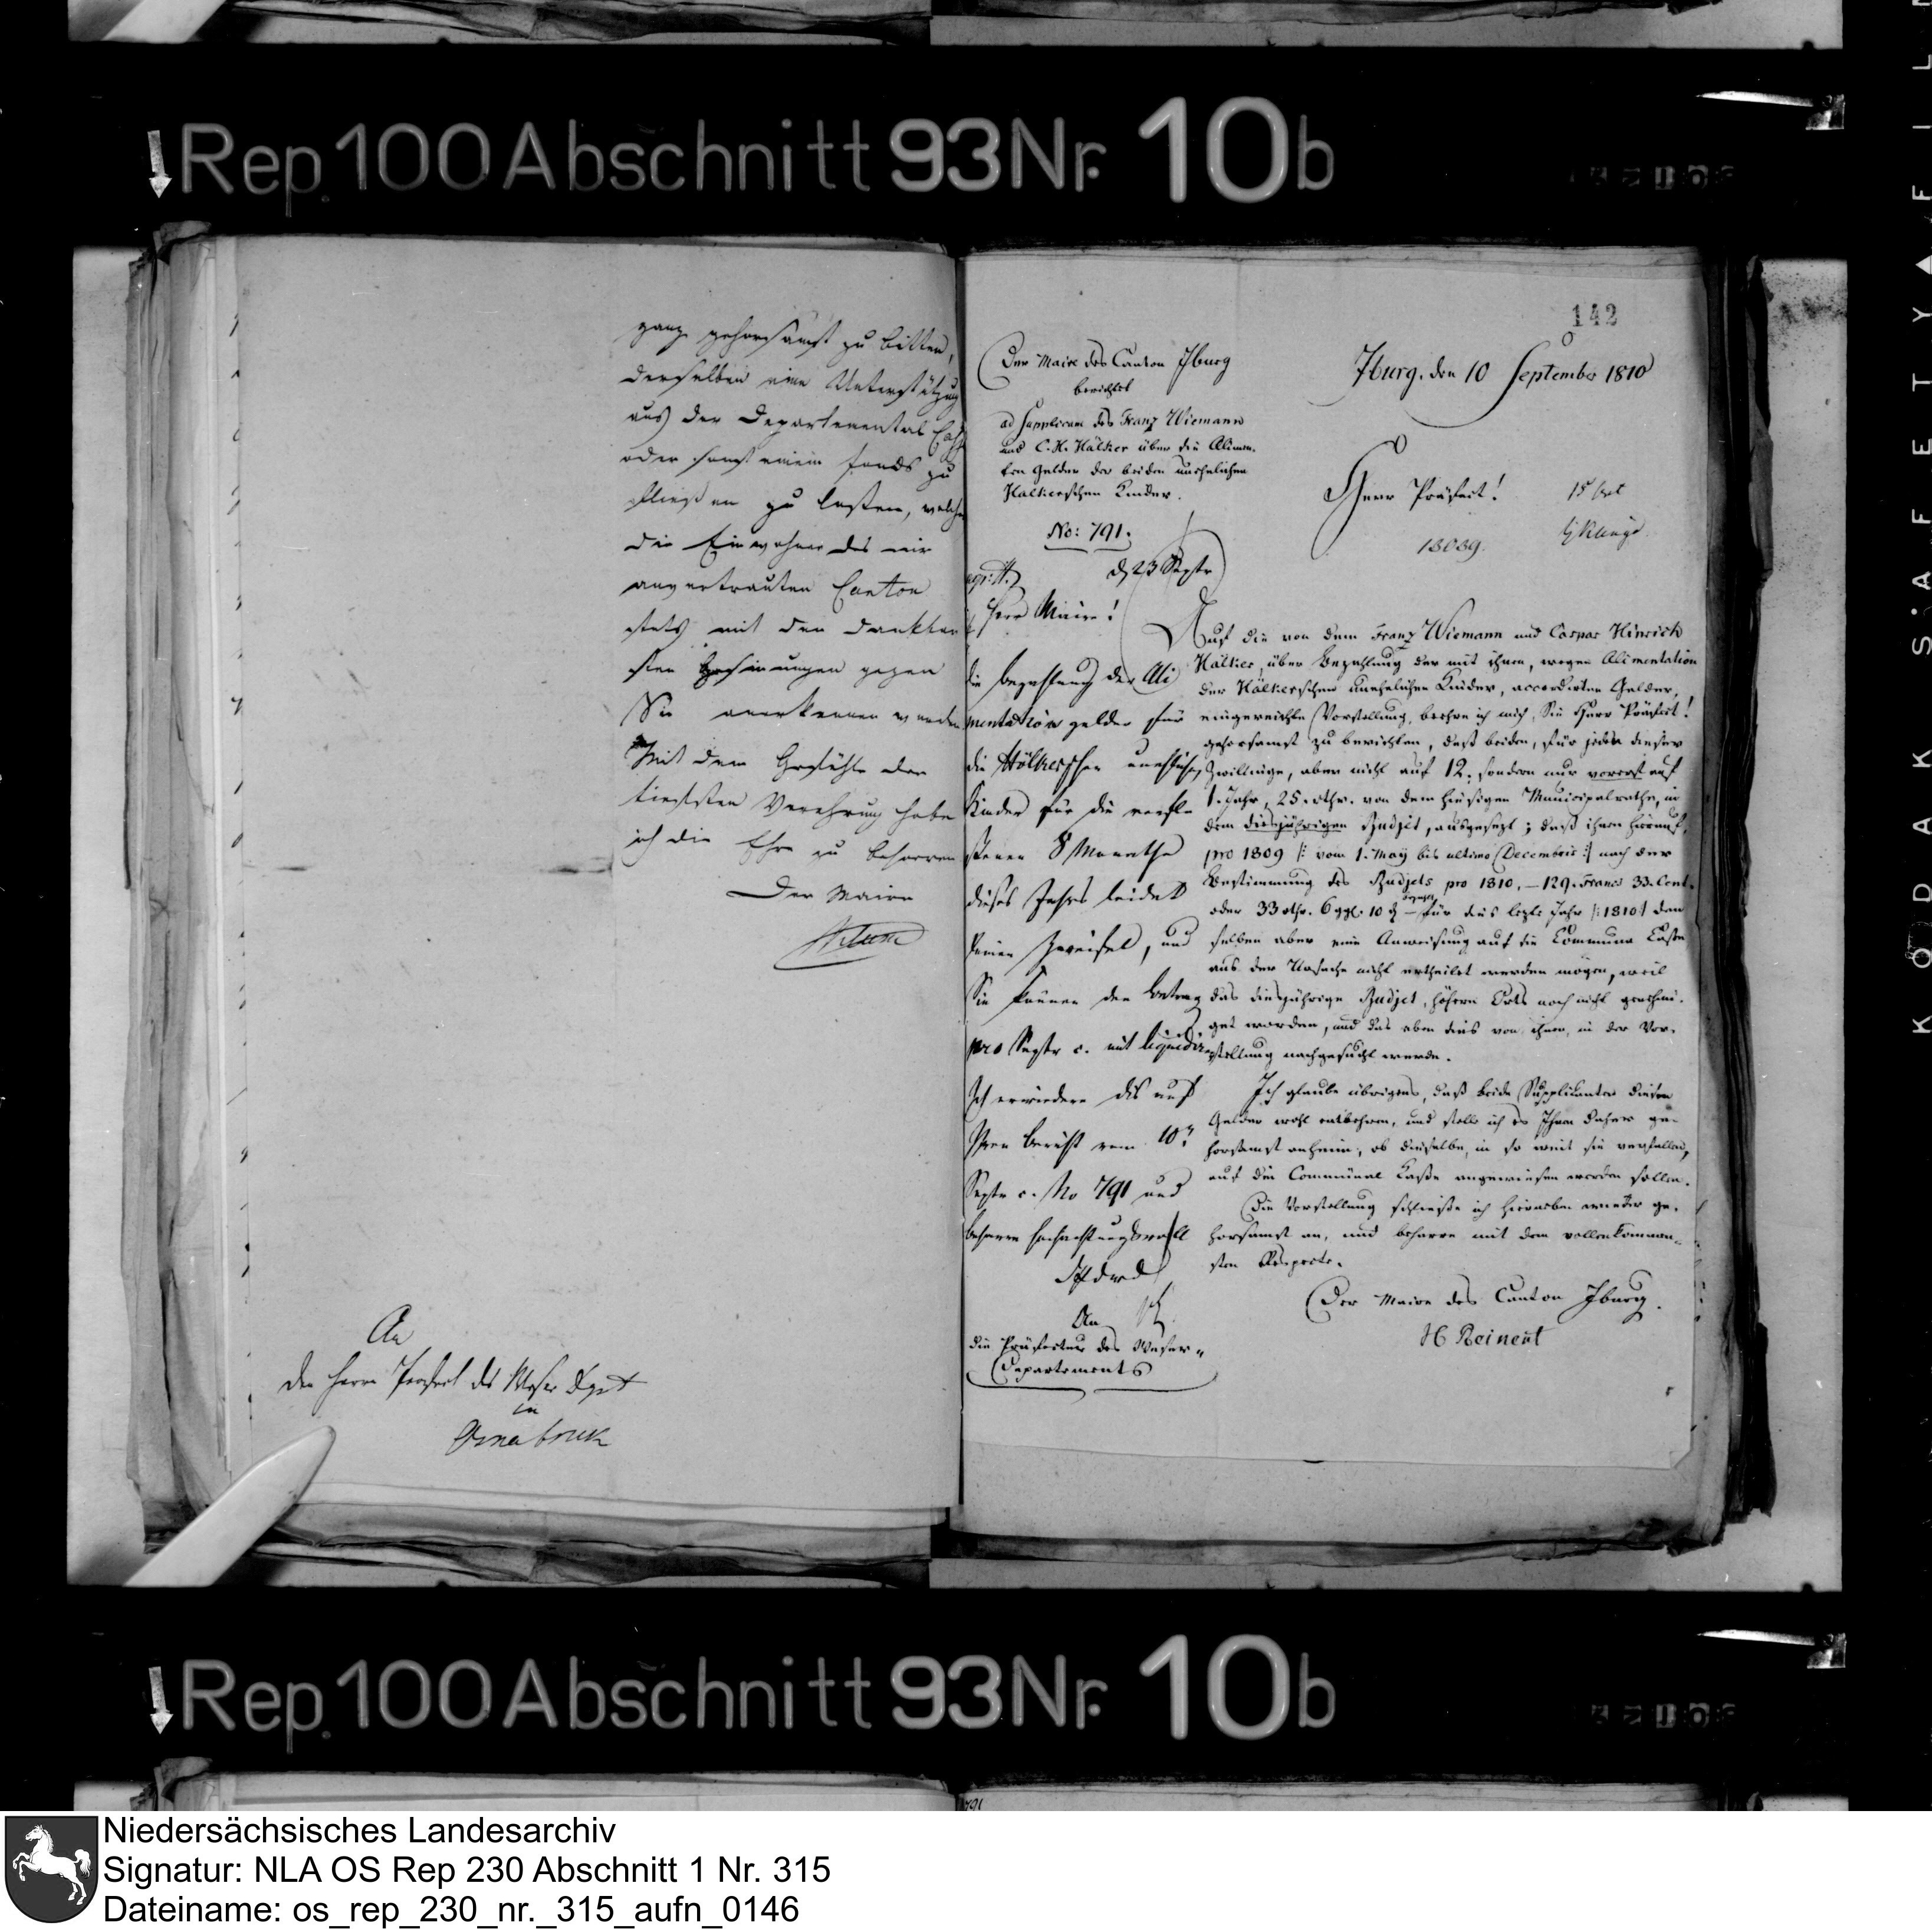 Rep. 100 Abschnitt 93 Nr. 10b
ganz gehorsamst zu bitten,
derselben eine Unterstützung
aus der Departemental Casse
oder sonst einem fonds zu
fließen zu lassen, welche
die Einwohner des mir
anvertrauten Canton
stets mit den dankbar
sten Gesinnungen gegen
Sie anerkennen werden
Mit dem Gefühle der
tiefsten Verehrung habe
ich die Ehre zu beharren
Der Maire
An
den Herrn Praefect des Weser Dept
in
Osnabruk
142
Der Maire des Canton Iburg
berichtet
ad Supplicam des Franz Wiemann
und C. H. Hälker über die Alimen-
ten Gelder der beiden unehelichen
Halkerschen Kinder.
No: 791.
Iburg, den 10 September 1810
Herr Präfect!
15 Sept
13039.
d 23 Septr
Herr Maire!
die Bezahlung der Ali
mentation gelder für
die Hölkerschen unehelichen
Kinder für die verflo
ssenen 8 Monathe
dieses Jahrs leidet
keinen Zweifel, und
Sie können den Betrag
pro Septr c. mit liquidiren
Ich erwiedere dis auf
Ihren Bericht vom 10n
Septr c. No 791 und
beharre hochachtungsvoll
Auf die von dem Franz Wiemann und Caspar Hinrich
Hälker, über Bezahlung der mit ihnen, wegen Alimentation
der Hälkerschen unehelichen Kinder, accordirten Gelder,
eingereichte Vorstellung, beehre ich mich, Sie Herr Präfect!
gehorsamst zu berichten, daß beiden, für jedes dieser
Zwillinge, aber nicht auf 12. sondern nur vorerst auf
1. Jahr, 25. rthr. von dem hiesigen Municipalrathe, in
dem diesjährigen Budjet, ausgesezt; daß ihnen hierauf,
pro 1809 /: vom 1. May bis ultimo Decembris :/ nach der
Bestimmung des Budjets pro 1810. — 129. Francs 33. Cent.
oder 33 rthr. 6 ggl. 10 d — für das lezte Jahr /: 1810 :/ den
selben aber eine Anweisung auf die Commune Casse
aus der Ursache nicht ertheilet werden mögen, weil
das diesjährige Budjet, höhern Orts noch nicht genehmi-
get worden, und das eben dies von ihnen, in der Vor-
stellung nachgesucht werde.
Ich glaube übrigens, daß beide Supplikanten diese
Gelder wohl entbehren, und stelle ich es Ihnen daher ge-
horsamst anheim, ob dieselbe, in so weit sie verfallen,
auf die Communal Casse angewiesen werden sollen.
Die Vorstellung schließe ich hierneben wieder ge-
horsamst an, und beharre mit dem vollenkommen-
sten Respecte.
Der Maire des Canton Iburg.
An
die Präfectur des Weser-
Departements
Rep. 100 Abschnitt 93 Nr. 10b
KODAK SAFETY FILM
Niedersächsisches Landesarchiv
Signatur: NLA OS Rep 230 Abschnitt 1 Nr. 315
Dateiname: os_rep_230_nr._315_aufn_0146